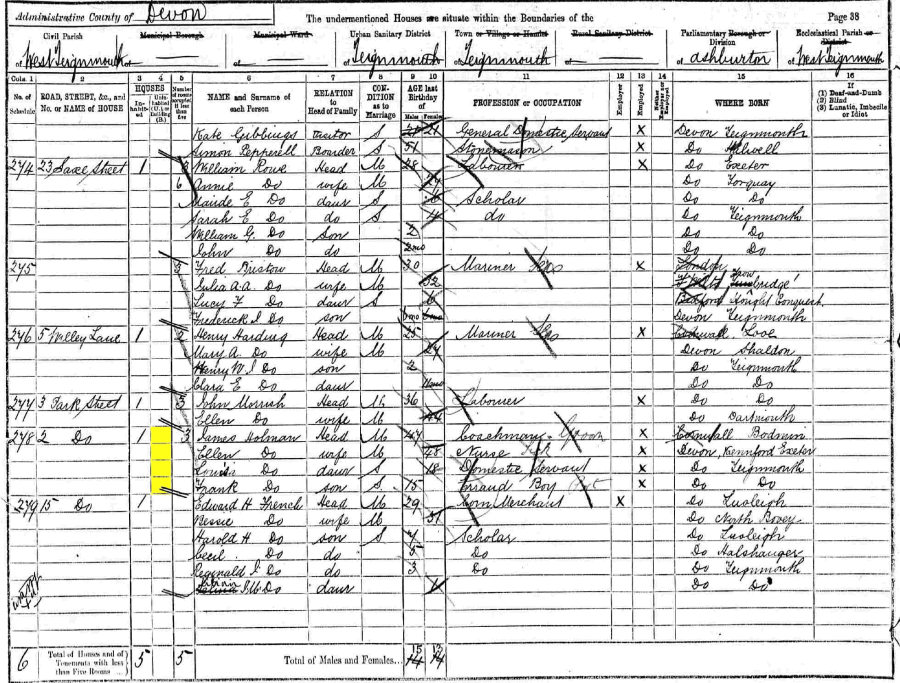 Administrative County of Devon The undermentioned Houses are situate within the Boundaries of the Page 38
Civil Parish Municipal Borough Municipal Ward Urban Sanitary District Town or Village or Hamlet Rural Sanitary District Parliamentary Borough or Division Ecclesiastical Parish or District
of West Teignmouth of of of Teignmouth of Teignmouth of of Ashburton of West Teignmouth
Cols. 1 2 3 4 5 6 7 8 9 10 11 12 13 14 15 16
No. of Schedule ROAD, STREET, &c., and No. or NAME of HOUSE HOUSES Inhabited Uninhabited (U.), or Building (B.) Number of rooms occupied if less than five NAME and Surname of each Person RELATION to Head of Family CONDITION as to Marriage AGE last Birthday of Males Females PROFESSION or OCCUPATION Employer Employed Neither Employer nor Employed WHERE BORN (1) Deaf-and-Dumb (2) Blind (3) Lunatic, Imbecile or Idiot
Kate Gibbings visitor S 21 General Domestic Servant X Devon Teignmouth
Simon Pepperell Boarder S 51 Stonemason X Do
274 23 Saxe Street 1 3 William Rowe Head M 28 Labourer X Do Exeter
6 Annie Do wife M 27 Do Torquay
Maude E Do daur S Scholar Do Do
Sarah E Do do S 4 do Do Teignmouth
William G. Do son 2 Do Do
John Do do 2mo Do Do
275 3 Fred Bristow Head M 30 Mariner X London
Julia A.A. Do wife M 32 bridge
Lucy F Do daur S 6 Bedford Hought Conquest
Frederick J Do son 6mo Devon Teignmouth
276 5 Willey Lane 1 2 Henry Harding Head M 25 Mariner X Cornwall Looe
Mary A. Do wife M 24 Devon Shaldon
Henry W J Do son 2 Do Teignmouth
Clara E Do daur 11mo Do Do
277 3 Park Street 1 3 John Morrish Head M 36 Labourer X Do Teignmouth
Ellen Do wife M 44 Do Dartmouth
278 2 Do 1 3 James Holman Head M 47 Coachman Groom X Cornwall Bodmin
Ellen Do wife M 48 Nurse X Devon, Kennford Exeter
Louisa Do daur S 18 Domestic Servant X Do Teignmouth
Frank Do son S 15 Errand Boy X Do Do
279 15 Do 1 Edward H French Head M 29 Corn Merchant X Do Lusleigh
Bessie Do wife M 31 Do North Bovey
Harold H Do son S 7 Scholar Do Lusleigh
Cecil Do do 5 Do Do Halshanger
Reginald J Do do 3 Do Do Teignmouth
Lilian J M Do daur 1 Do Do
6 Total of Houses and of Tenements with less than Five Rooms 5 5 Total of Males and Females... 15 14 13 14